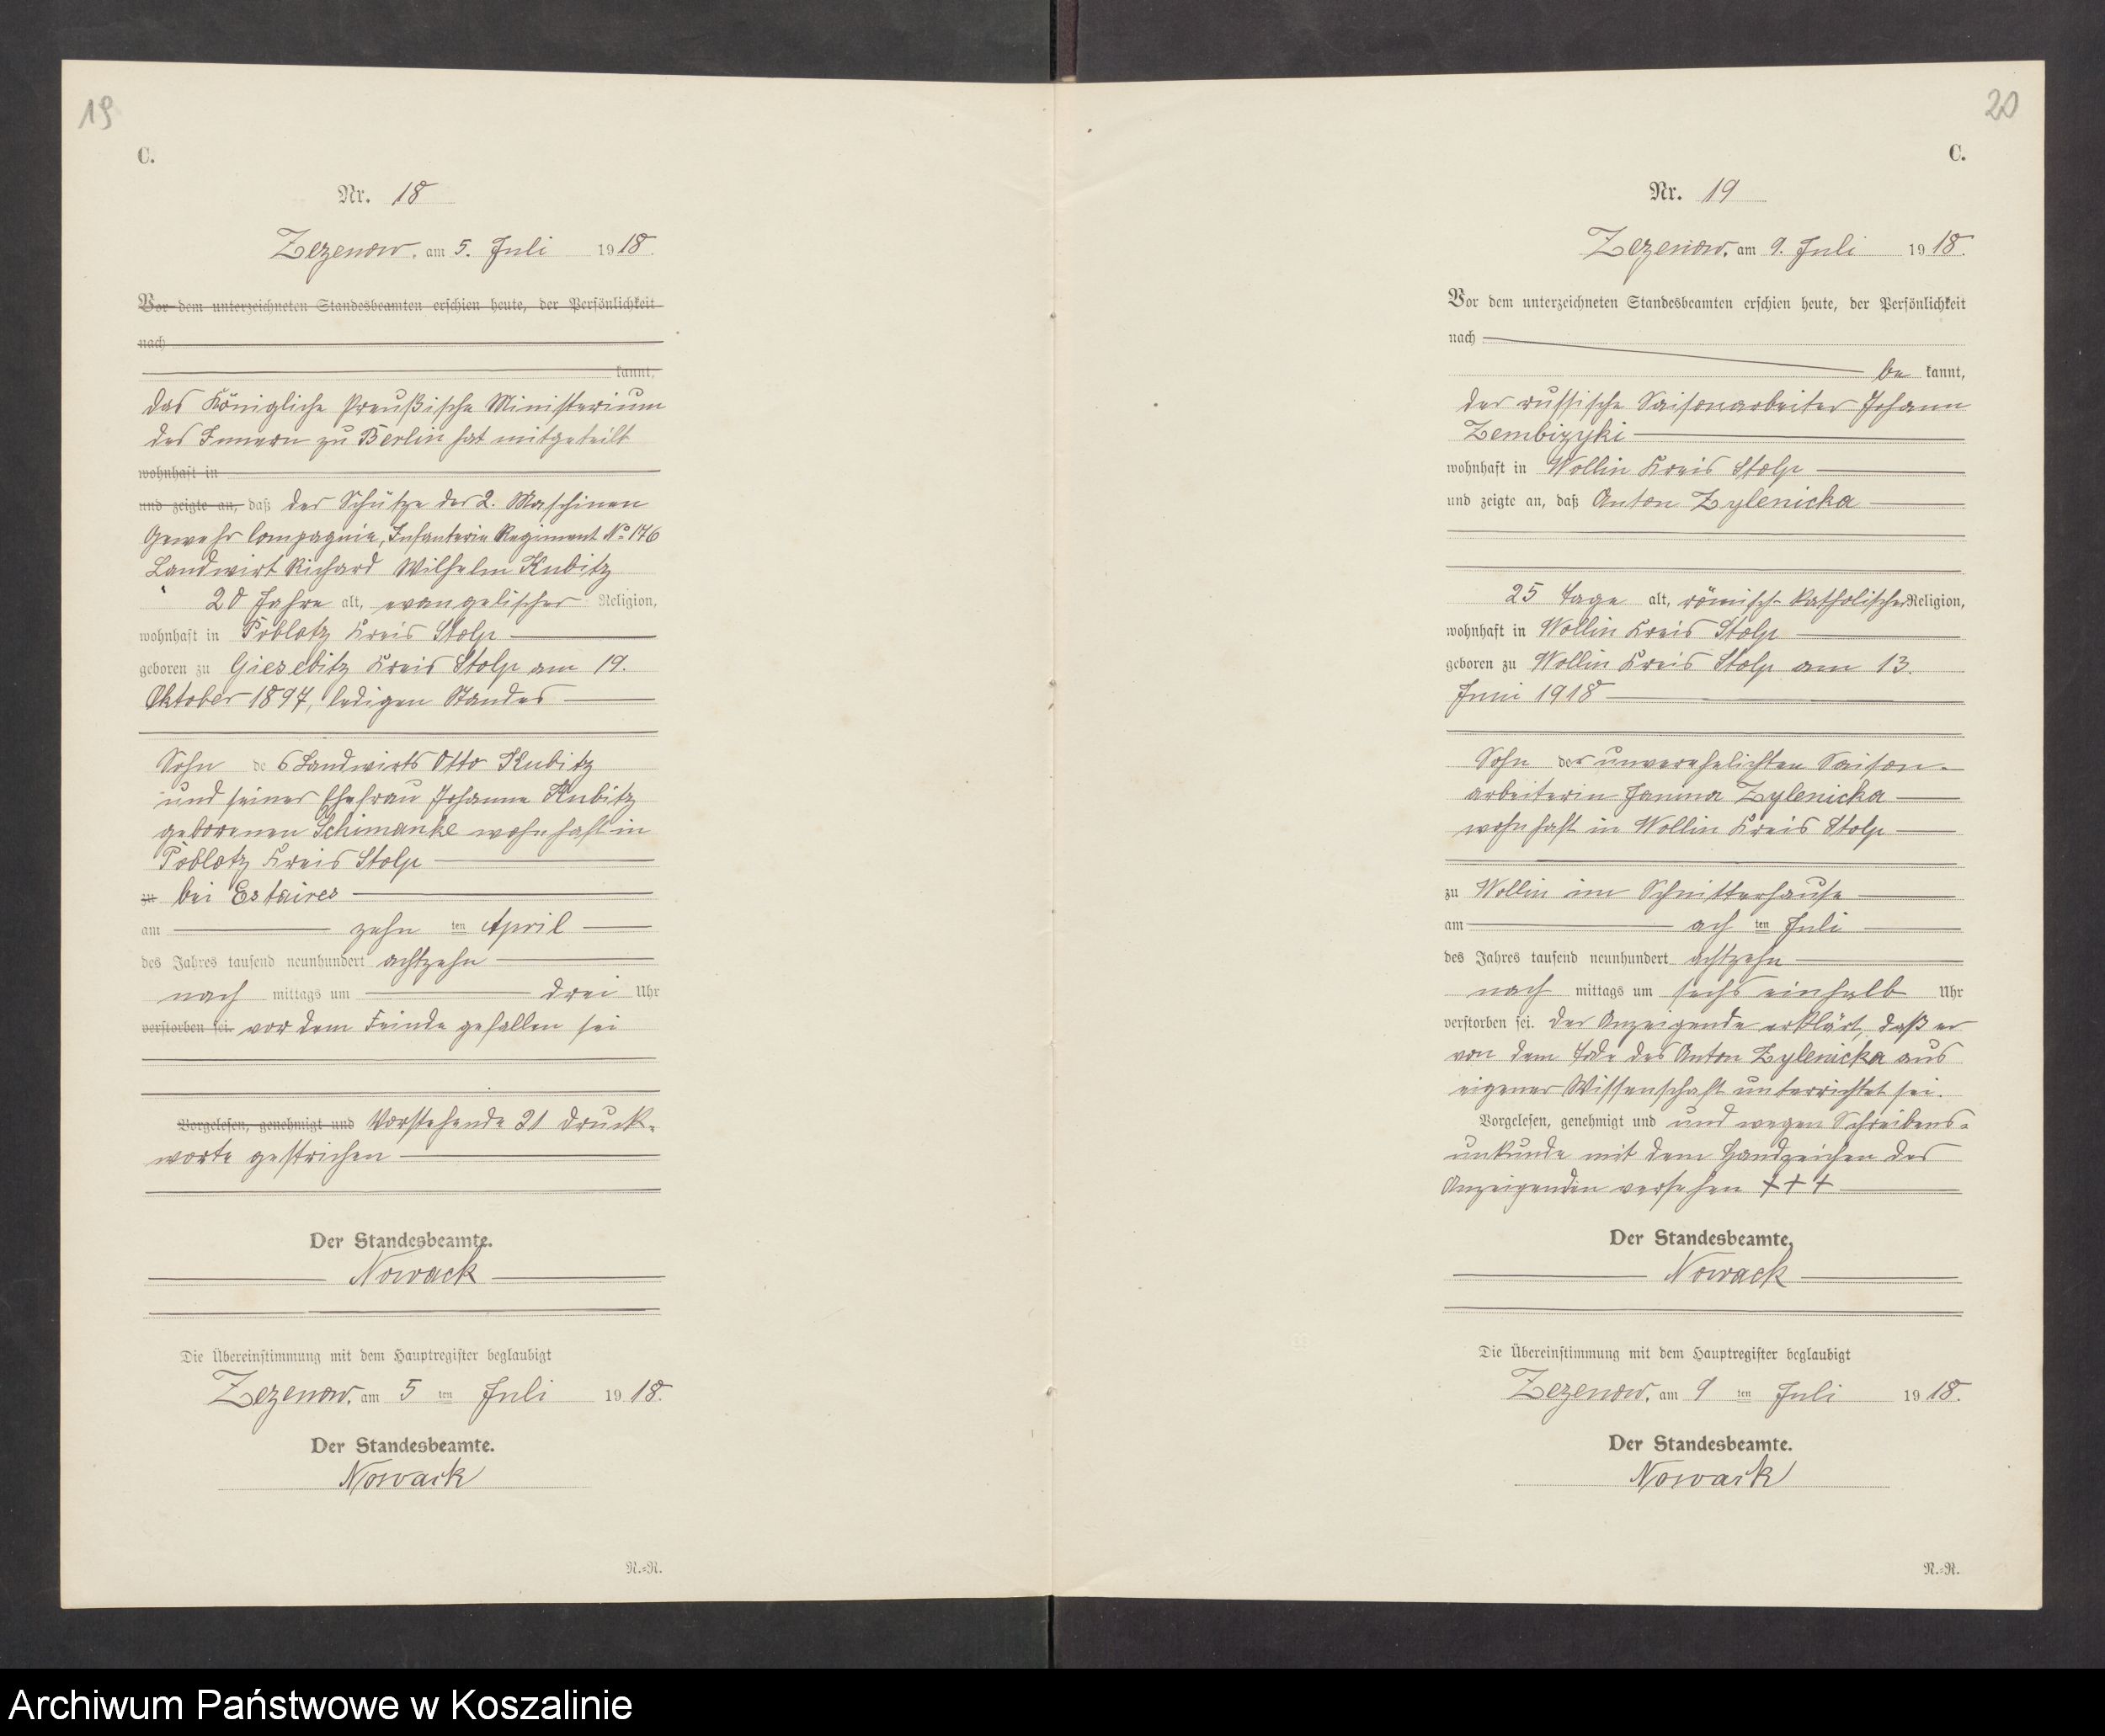 19
C.
Nr. 18
Zezenow, am 5. Juli 1918.
Vor dem unterzeichneten Standesbeamten erschien heute, der Persönlichkeit
nach
kannt,
das Königliche Preußische Ministerium
des Innern zu Berlin hat mitgeteilt
wohnhaft in
und zeigte an, daß der Schütze der 2. Maschinen
Gewehr Compagnie, Infanterie Regiment No 176
Landwirt Richard Wilhelm Kubitz
20 Jahre alt, evangelischer Religion,
wohnhaft in Poblotz Kreis Stolp
geboren zu Giesebitz Kreis Stolp am 19.
Oktober 1897, ledigen Standes
Sohn des Landwirts Otto Kubitz
und seiner Ehefrau Johanne Kubitz
geborenen Schimanke wohnhaft in
Poblotz Kreis Stolp
zu bei Estaires
am zehn ten April
des Jahres tausend neunhundert achtzehn
nach mittags um drei Uhr
verstorben sei. vor dem Feinde gefallen sei
Vorgelesen, genehmigt und Vorstehende 21 Druck-
worte gestrichen
Der Standesbeamte.
Nowack
Die Übereinstimmung mit dem Hauptregister beglaubigt
Zezenow, am 5 ten Juli 1918.
Der Standesbeamte.
Nowack
N.-R.
20
C.
Nr. 19
Zezenow, am 9. Juli 1918.
Vor dem unterzeichneten Standesbeamten erschien heute, der Persönlichkeit
nach
be kannt,
der russische Saisonarbeiter Johann
Zembizyki
wohnhaft in Wollin Kreis Stolp
und zeigte an, daß Anton Zylenicka
25 Tage alt, römisch-katholischer Religion,
wohnhaft in Wollin Kreis Stolp
geboren zu Wollin Kreis Stolp am 13.
Juni 1918
Sohn der unverehelichten Saison-
arbeiterin Janina Zylenicka
wohnhaft in Wollin Kreis Stolp
zu Wollin im Schnitterhause
am ach ten Juli
des Jahres tausend neunhundert achtzehn
nach mittags um sechs einhalb Uhr
verstorben sei. Der Anzeigende erklärt, daß er
von dem Tode des Anton Zylenicka aus
eigener Wissenschaft unterrichtet sei.
Vorgelesen, genehmigt und und wegen Schreibens-
unkunde mit dem Handzeichen des
Anzeigenden versehen +++
Der Standesbeamte.
Nowack
Die Übereinstimmung mit dem Hauptregister beglaubigt
Zezenow, am 9 ten Juli 1918.
Der Standesbeamte.
Nowack
N.-R.
Archiwum Państwowe w Koszalinie